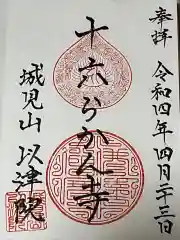 奉拝
令和四年四月二十三日
十六らかん寺
城見山 以津院